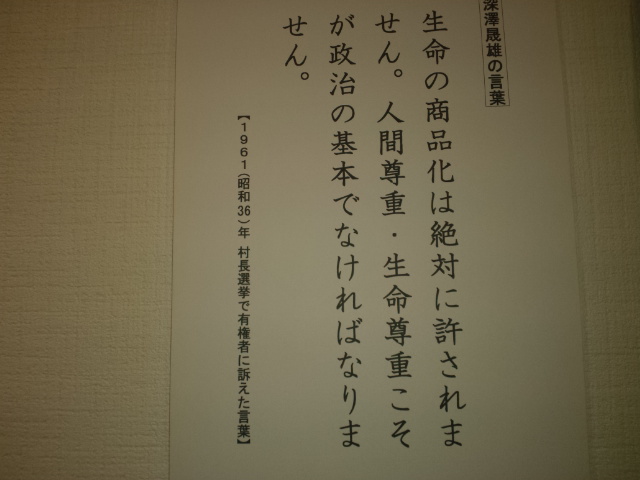 深澤晟雄の言葉
生命の商品化は絶対に許されま
せん。人間尊重・生命尊重こそ
が政治の基本でなければなりま
せん。
【1961（昭和36）年 村長選挙で有権者に訴えた言葉】